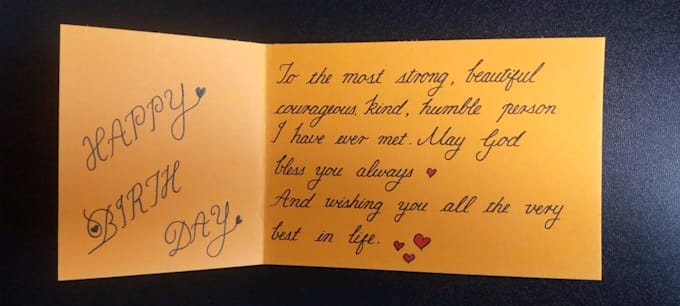 HAPPY
BIRTH
DAY
To the most strong, beautiful
courageous, kind, humble person
I have ever met. May God
bless you always
And wishing you all the very
best in life.